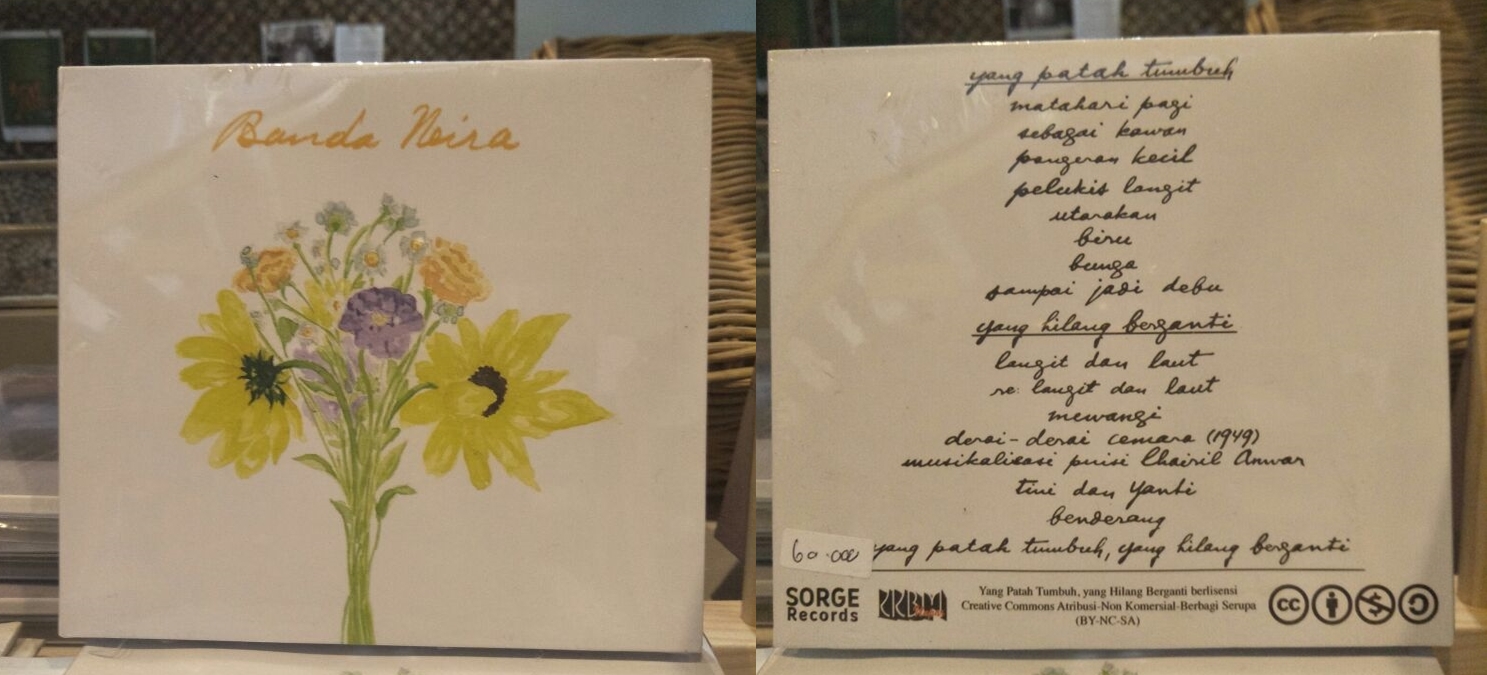 Banda Neira
yang patah tumbuh
matahari pagi
sebagai kawan
pangeran kecil
pelukis langit
utarakan
biru
bunga
sampai jadi debu
yang hilang berganti
langit dan laut
re: langit dan laut
mewangi
derai-derai cemara (1949)
musikalisasi puisi Chairil Anwar
tini dan yanti
benderang
yang patah tumbuh, yang hilang berganti
60.000
SORGE
Records
Yang Patah Tumbuh, yang Hilang Berganti berlisensi
Creative Commons Atribusi-Non Komersial-Berbagi Serupa
(BY-NC-SA)
cc